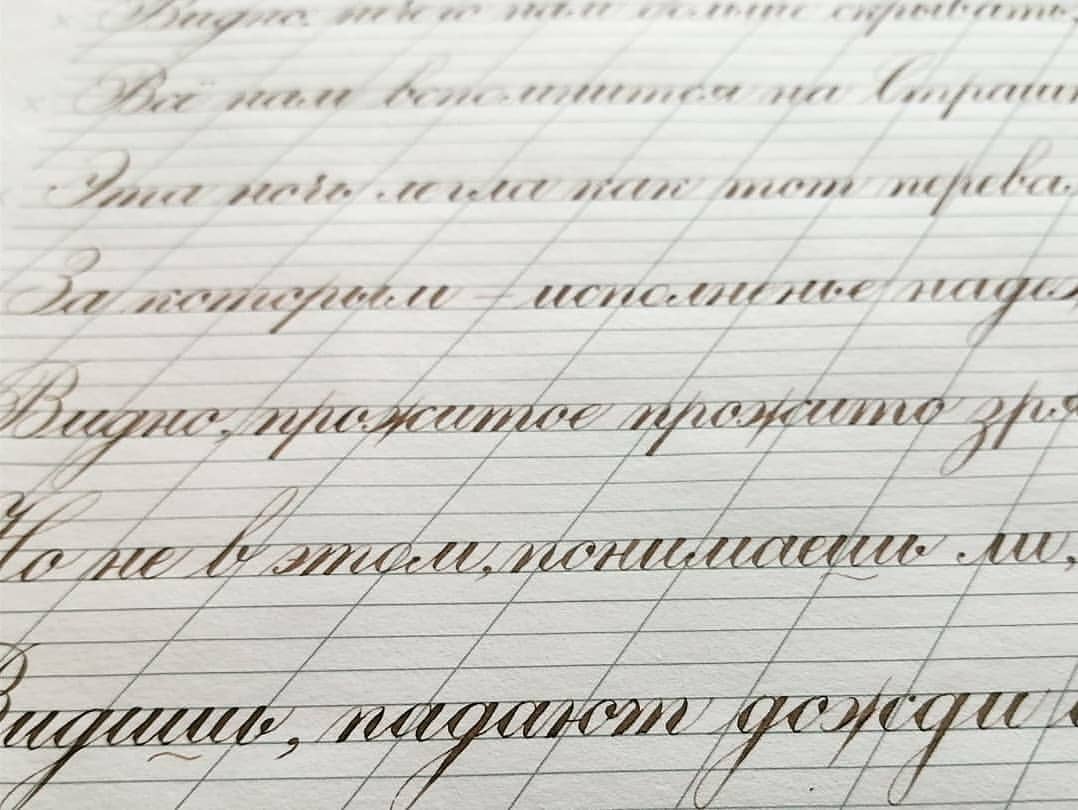 Видно, нечего нам больше скрывать,
Всё нам вспомнится на Страшн
Эта ночь легла как тот перева
За которым – исполненье надеж
Видно, прожитое прожито зря
Но не в этом, понимаешь ли,
Видишь, падают дожди